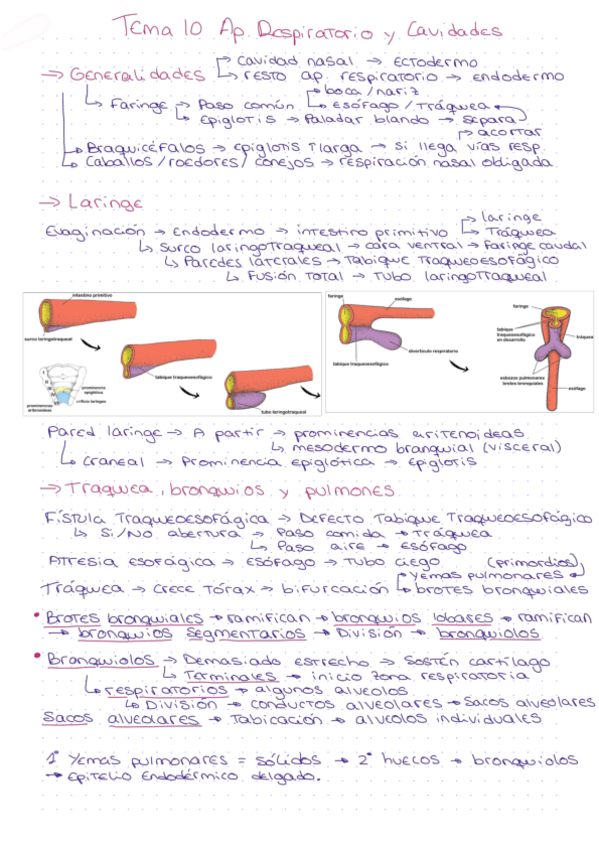 Tema 10 Ap. Respiratorio y Cavidades
→ Generalidades → cavidad nasal → Ectodermo
→ resto ap. respiratorio → endodermo
→ Faringe → Paso común → boca/nariz
→ Esófago / Tráquea
→ Epiglotis → Paladar blando → separa
→ acortar
→ Braquicéfalos → Epiglotis ↑ larga → si llega vías resp.
→ Caballos / roedores / conejos → respiración nasal obligada
→ Laringe
Evaginación → Endodermo → intestino primitivo → laringe
→ Tráquea
→ Surco laringotraqueal → cara ventral → Faringe caudal
→ Paredes laterales → Tabique traqueoesofágico
→ Fusión total → Tubo laringotraqueal
intestino primitivo
surco laringotraqueal
tabique traqueoesofágico
prominencia epiglótica
orificio laríngeo
prominencias aritenoideas
tubo laringotraqueal
faringe
esófago
divertículo respiratorio
tabique traqueoesofágico
faringe
tabique traqueoesofágico en desarrollo
tráquea
esbozos pulmonares brotes bronquiales
esófago
Pared laringe → A partir → prominencias aritenoideas
→ mesodermo branquial (visceral)
→ craneal → Prominencia epiglótica → Epiglotis
→ Traquea, bronquios y pulmones
Fístula Traqueoesofágica → Defecto Tabique Traqueoesofágico
→ Si/No abertura → Paso comida → Tráquea
→ Paso aire → Esófago
Atresia esofágica → Esófago → Tubo ciego (primordios)
Tráquea → Crece Tórax → bifurcación → Yemas pulmonares
→ brotes bronquiales
• Brotes bronquiales → ramifican → bronquios lobares → ramifican
→ bronquios segmentarios → División → bronquiolos
• Bronquiolos → Demasiado estrecho → Sostén cartílago
→ Terminales → inicio zona respiratoria
→ respiratorios → algunos alveolos
→ División → conductos alveolares → Sacos alveolares
Sacos alveolares → Tabicación → alveolos individuales
1º Yemas pulmonares = sólidos → 2º huecos → bronquiolos
→ Epitelio Endodérmico delgado.